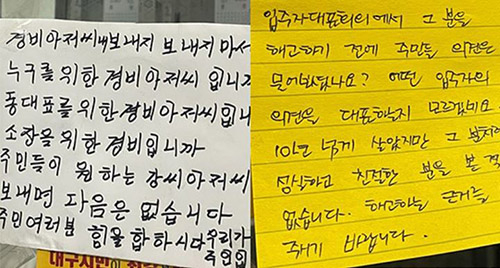 경비아저씨 내보내지 보내지 마서
누구를 위한 경비아저씨 입니까
동대표를 위한 경비아저씨입니
소장을 위한 경비입니까
주민들이 원 하는 강씨아저씨
보내면 다음은 없습니다
주민여러분 힘을 합하시다 우리가
주인입
대구지방
입주자대표회의에서 그 분을
해고하기 전에 주민들 의견은
물어봤답니까? 어떤 입주자의
의견을 대표하는지 모르겠네요
10년 넘게 살았지만 그 분처럼
성실하고 친절한 분을 본 적
없습니다. 해고하는 근거를
주시기 바랍니다.